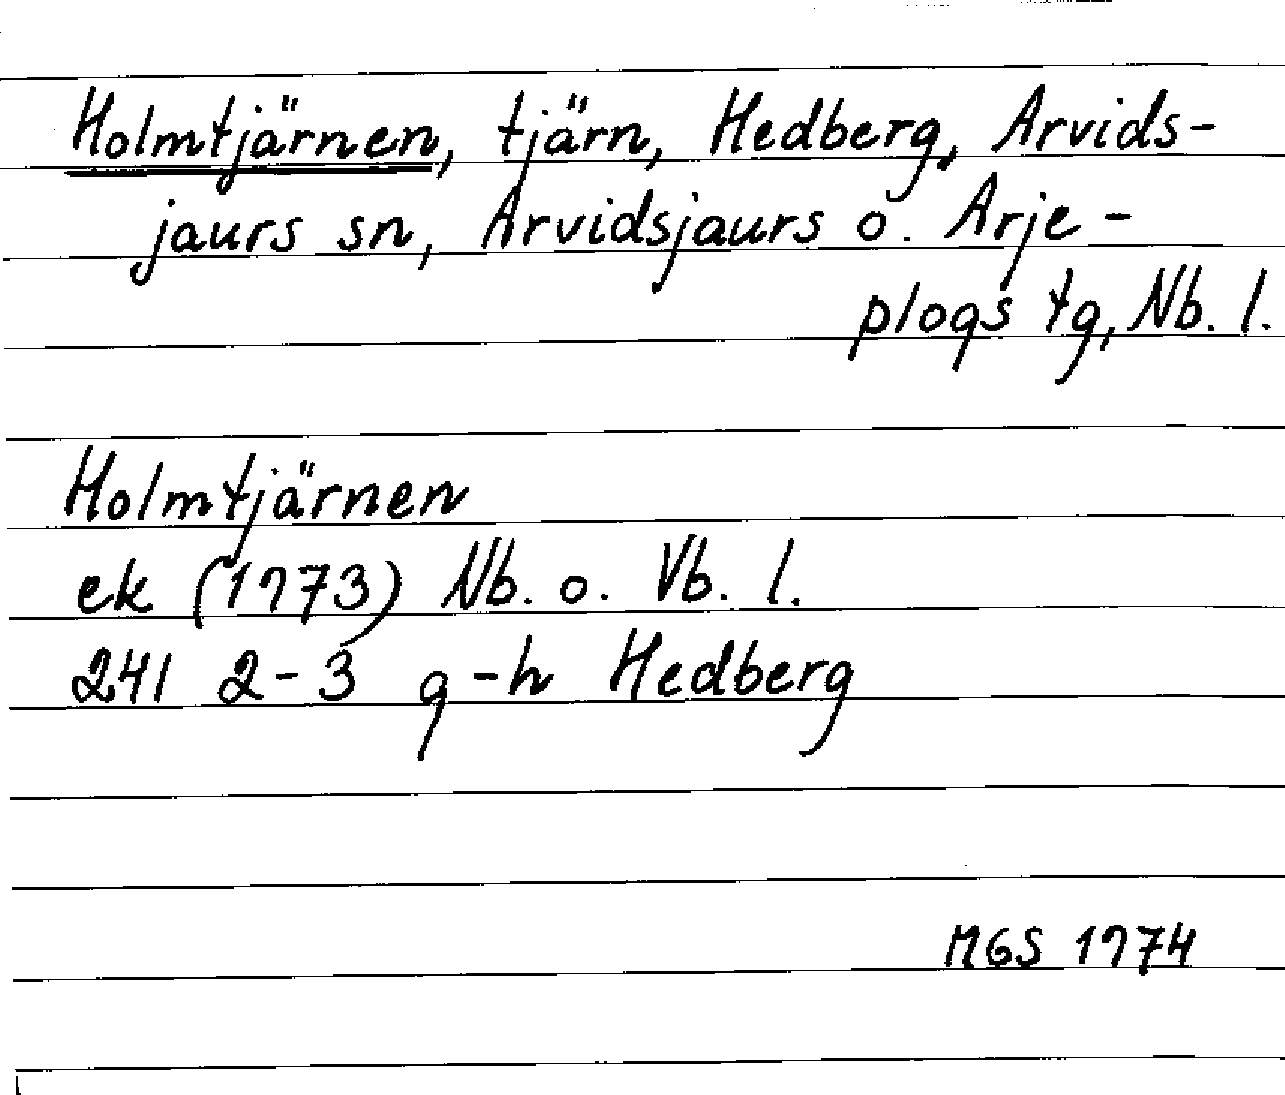 Holmtjärnen, tjärn, Hedberg, Arvids-
jaurs sn, Arvidsjaurs o. Arje-
plogs tg, Nb. l.
Holmtjärnen
ek (1973) Nb. o. Vb. l.
241 2-3 g-h Hedberg
MGS 1974